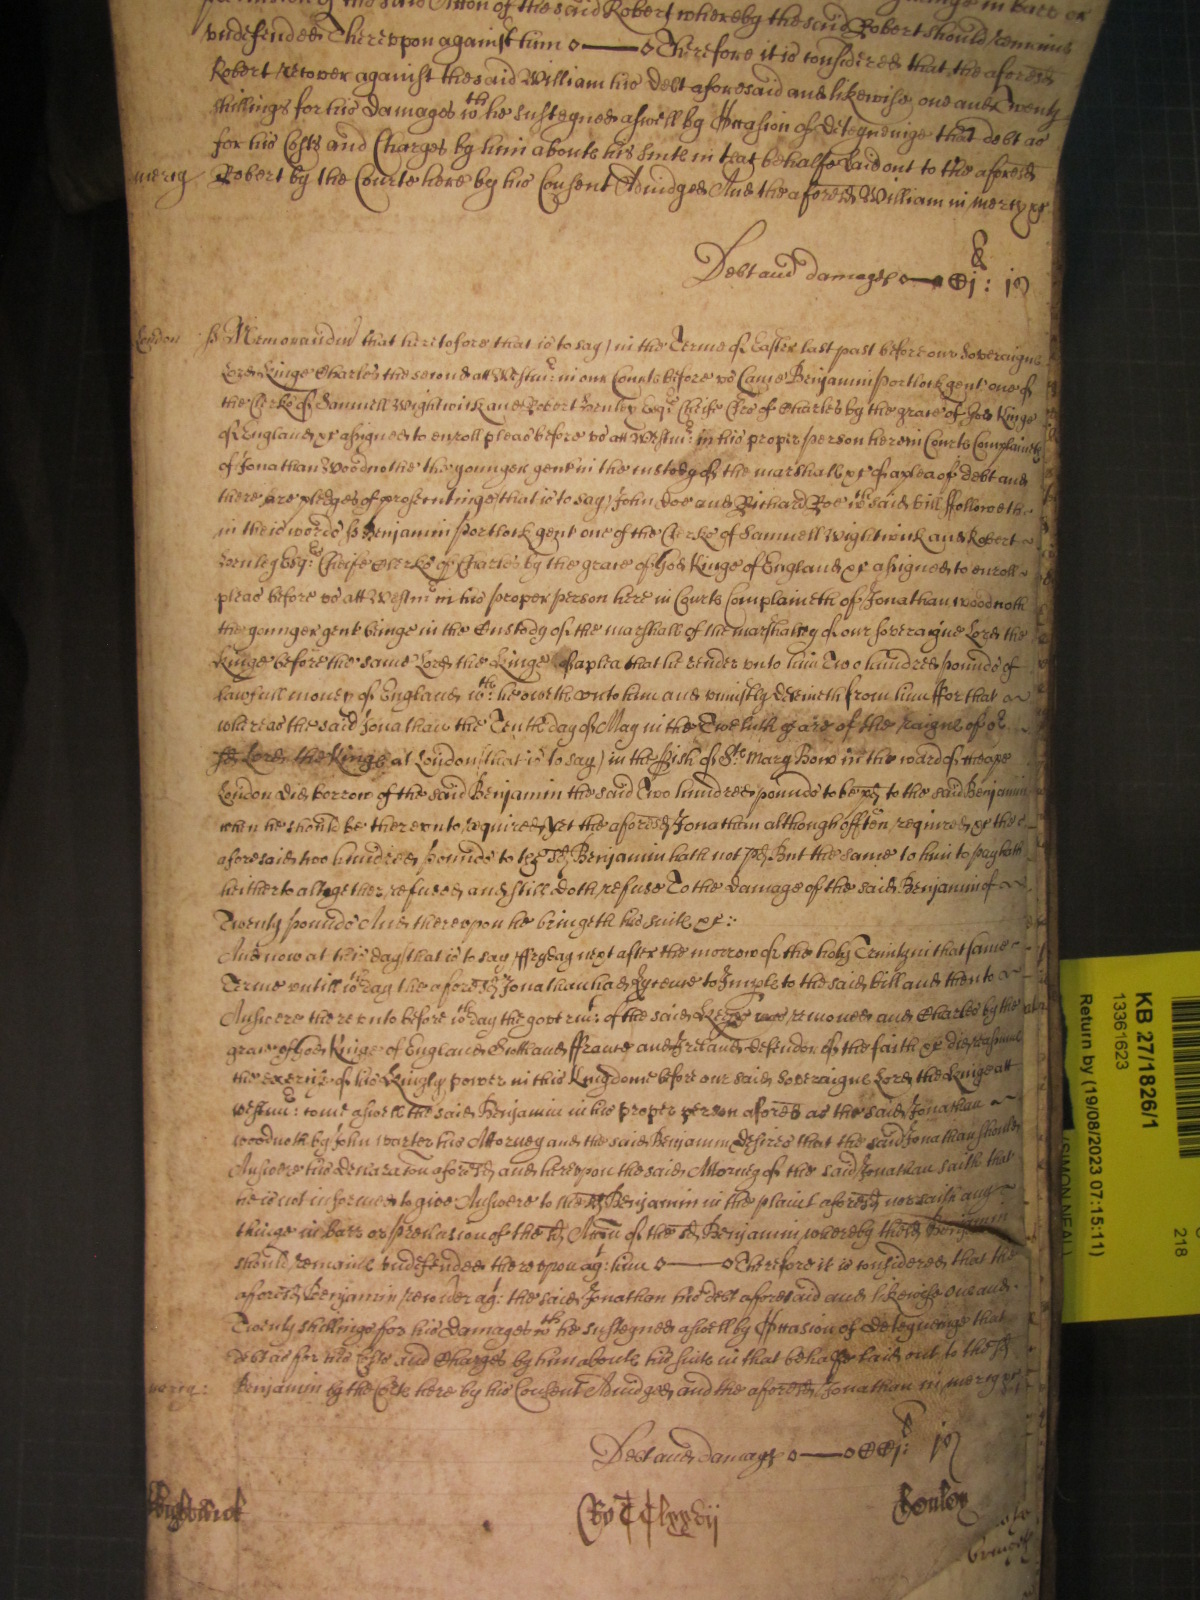 undefended Thereupon against him o——o Therefore it is considered that the aforesd
Robert recover against the said William his Debt aforesaid and likewise one and Twenty
shillings for his Damages wth he susteyned aswell by Occasion of deteyneinge that debt as
for his Costs and Charges by him aboute his suite in that behalfe laid out to the aforesd
mercy Robert by the Courte here by his Consent Adiudged And the aforesd William in mercy &c
Debt and damages o——o Cj : js
London ss Memorandum that heretofore that is to say) in the Terme of Easter last past before our Soveraigne
Lord Kinge Charles the second att Westmr: in our Courte before us Came Benjamin Portlock gent one of
the Clerks of Samuell Wightwick and Robert Henley Esqrs Cheife Clerks of Charles by the grace of God Kinge
of England &c assigned to enroll pleas before us att Westmr: in his proper person here in Courte Complaineth
of Jonathan Woodnothe the younger gent in the custody of the marshall &c of a plea of debt and
there are pledges of prosecutinge that is to say) John Doe and Richard Roe wch said bill followeth
in theis words ss Benjamin Portlock gent one of the Clerks of Samuell Wightwick and Robert
Henley Esqrs: Cheife Clerks of Charles by the grace of God Kinge of England &c assigned to enroll
pleas before us att Westmr in his proper person here in Courte Complaineth of Jonathan Woodnoth
the younger gent beinge in the Custody of the marshall of the marshallsey of our soveraigne Lord the
Kinge before the same Lord the Kinge of a plea that he render unto him Two hundred pounds of
lawfull money of England wch: he oweth unto him and uniustly deteineth from him ffor that
whereas the said Jonathan the Tenth day of May in the Twelveth yeare of the raigne of or
sd Lord the Kinge at London (that is to say) in the pish of Ste Mary Bow in the ward of Cheape
London did borrow of the said Benjamin the said Two hundred pounds to be pd to the said Benjamin
when he should be thereunto required Yet the aforesd Jonathan although often required &c the
aforesaid two hundred pounds to the sd Benjamin hath not pd But the same to him to pay hath
hitherto altogether refused and still doth refuse To the Damage of the said Benjamin of
Twenty pounds And thereupon he bringeth his suite &c:
And now at this day (that is to say ffryday next after the morrow of the holy Trinity in that same
Terme untill wch day the aforesd Jonathan had Lycence to Imple to the said bill and then to
Answere thereunto before wch day the govermt: of the said removed and Charles by the
grace of God Kinge of England Scotland ffrance and Ireland defender of the faith &c
the exercise of his Kingly power in this Kingdome before our said Soveraigne Lord the Kinge att
Westmr: come aswell the said Benjamin in his proper person aforesd as the said Jonathan
Woodnoth by John Carter his Attorney and the said Benjamin desires that the said Jonathan should
Answere his declaration aforesd and hereupon the said Attorney of the said Jonathan saith that
he is not informed to give Answere to the sd Benjamin in the plaint aforesd nor saith any
thinge in barr or preclusion of the sd Accon of the sd Benjamin whereby the sd Benjamin
should remaine undefended thereupon agt: him o——o Therefore it is considered that the
aforesd Benjamin recover agt: the said Jonathan his debt aforesaid and likewise one and
Twenty shillings for his Damages wch he susteyned aswell by Occasion of deteyneinge that
debt as for his Costs and Charges by him aboute his suite in that behalfe laid out to the sd
mercy: Benjamin by the Cote here by his Consent Adiudged and the aforesd Jonathan in mercy &c
Debt and damages o——o CCj: js
Wightwick Ro CClxxvij Henley
KB 27/1826/1
13361623
Return by (19/08/2023 07:15:11)
(SIMON NEAL)
218